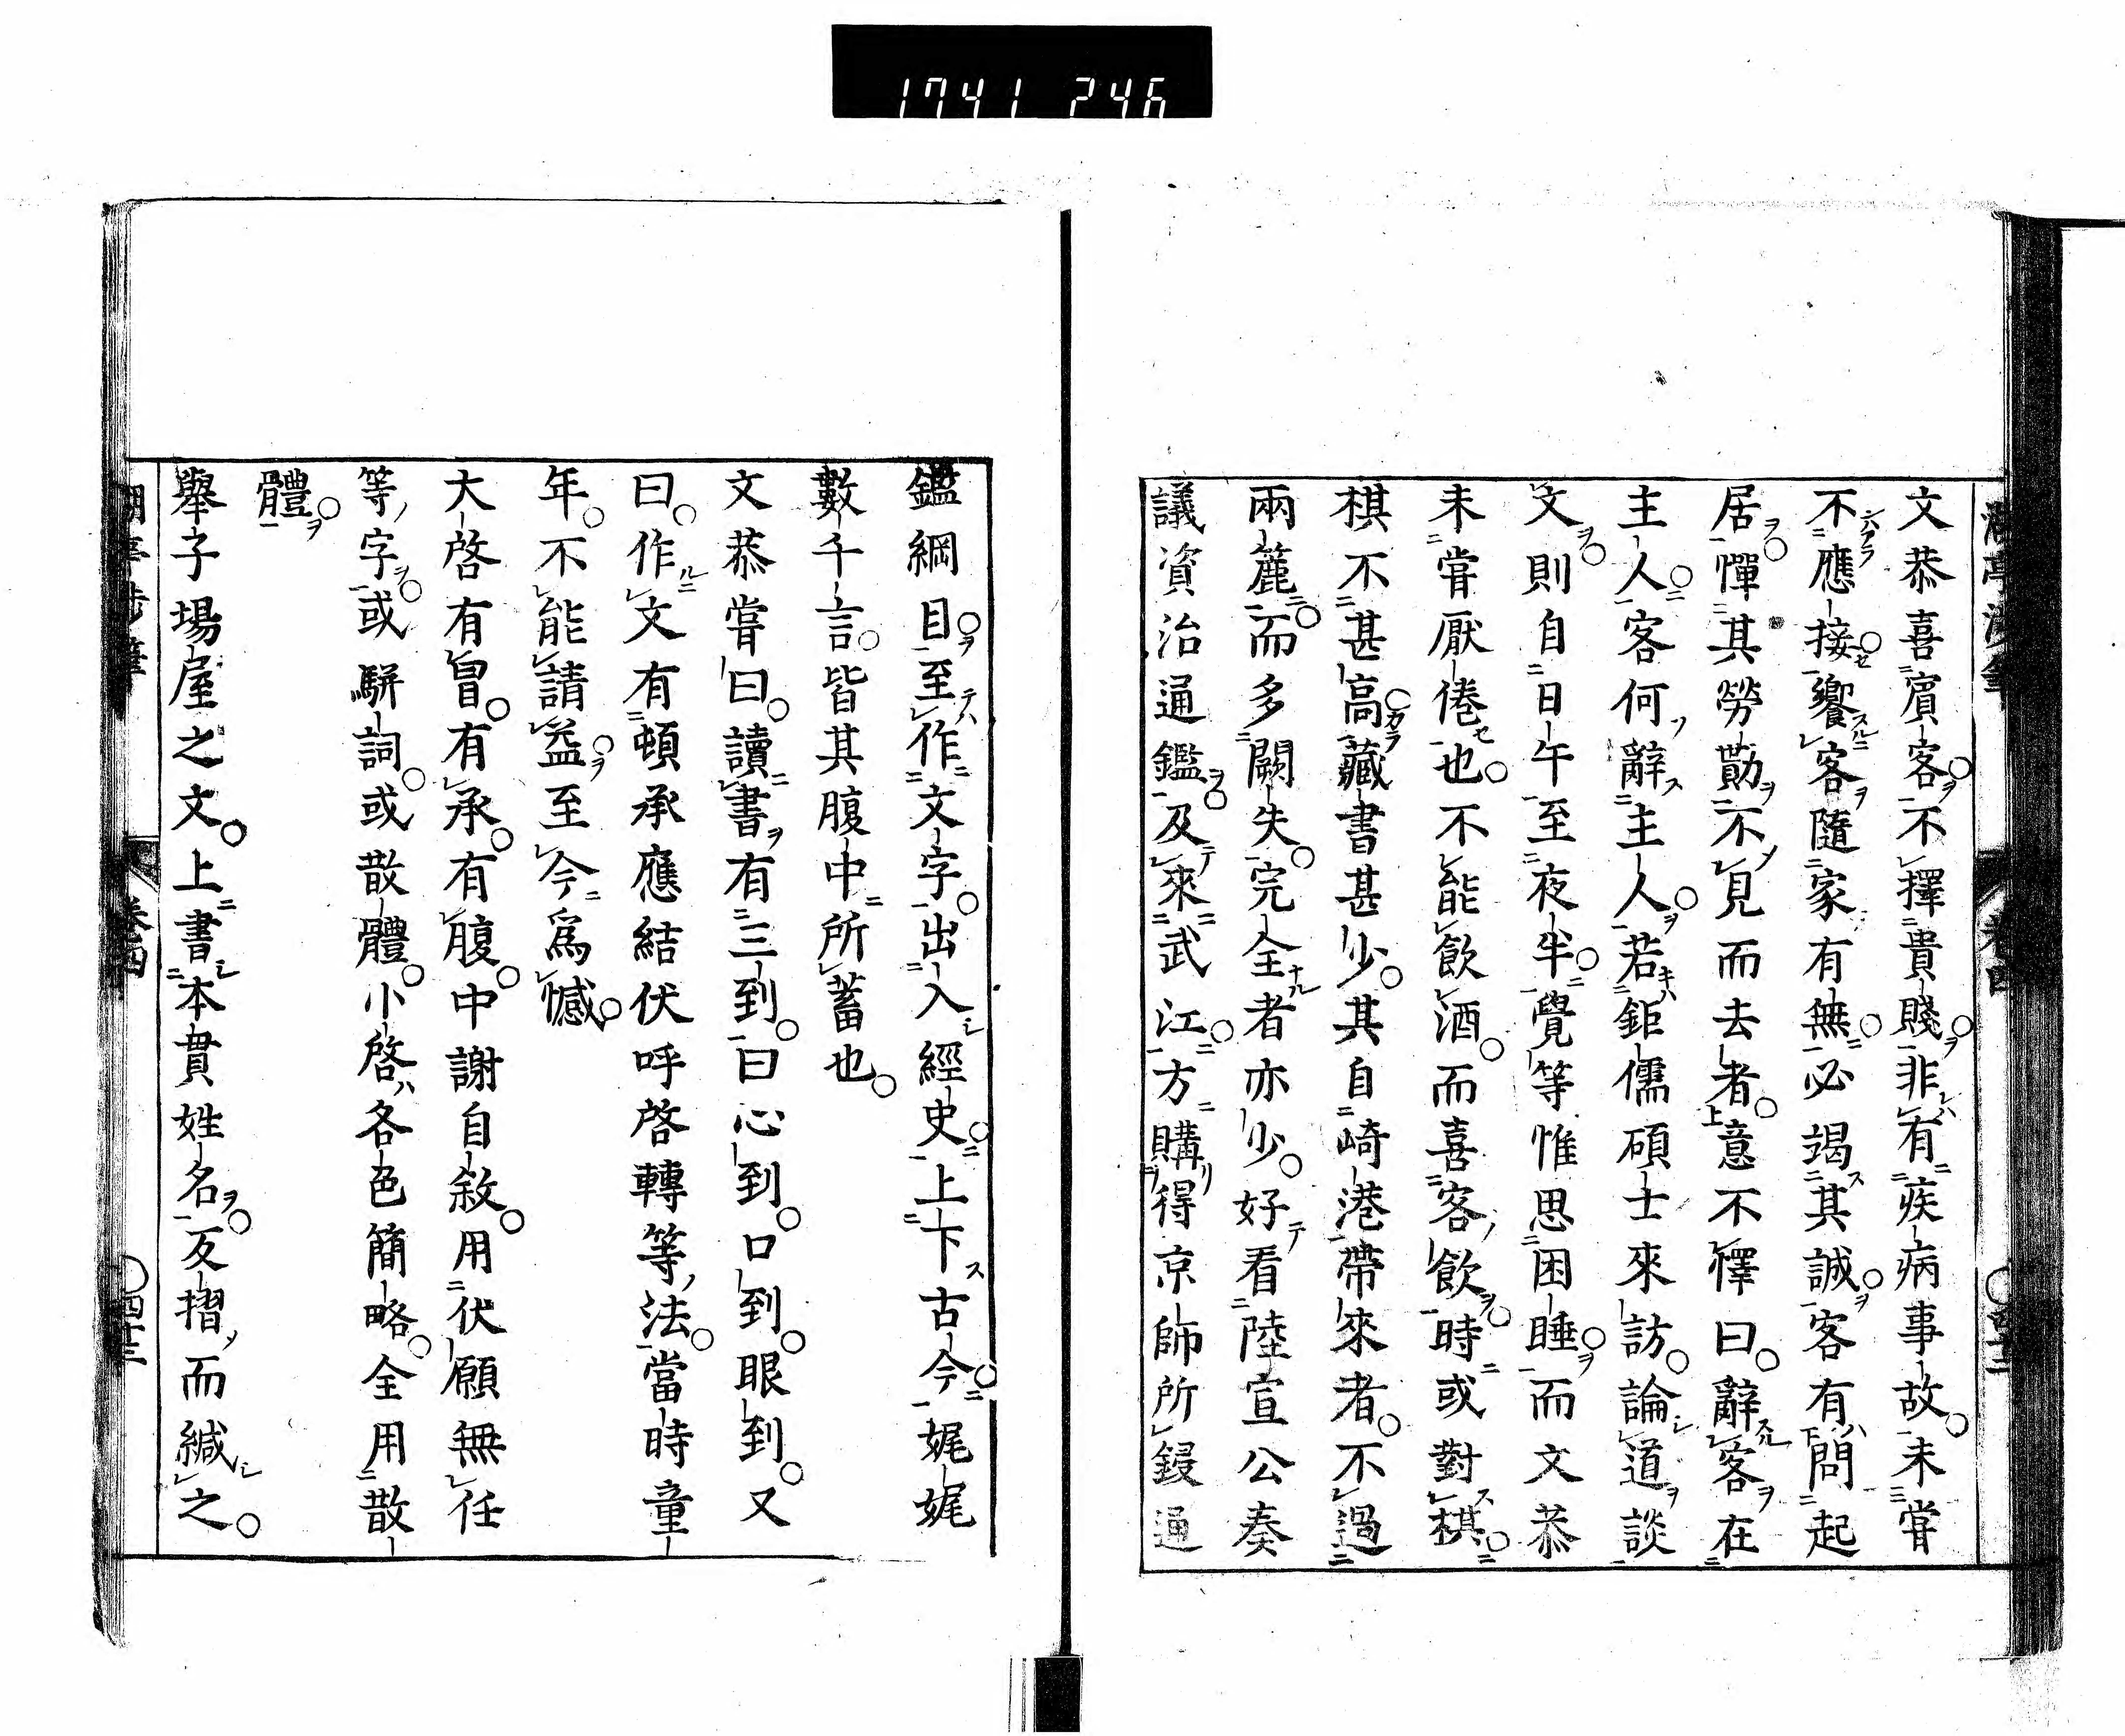 1741 246
文恭喜賓客不擇貴賤非有疾病事故未嘗
不應接饗客隨家有無必竭其誠客有問起
居憚其勞勩不見而去者意不懌曰辭客在
主人客何辭主人若鉅儒碩士來訪論道談
文則自日午至夜半覺等惟思困睡而文恭
未嘗厭倦也不能飲酒而喜客飲時或對棋
棋不甚高藏書甚少其自崎港帶來者不過
兩簏而多闕失完全者亦少好看陸宣公奏
議資治通鑑及來武江方購得京師所鋟通
鑑綱目至作文字出入經史上下古今娓娓
數千言皆其腹中所蓄也
文恭嘗曰讀書有三到曰心到口到眼到又
曰作文有頓承應結伏呼啓轉等法當時童
年不能請益至今爲憾
大啓有冒有承有腹中謝自敘用伏願無任
等字或駢詞或散體小啓各色簡略全用散
體
舉子場屋之文上書本貫姓名反摺而緘之
卷四